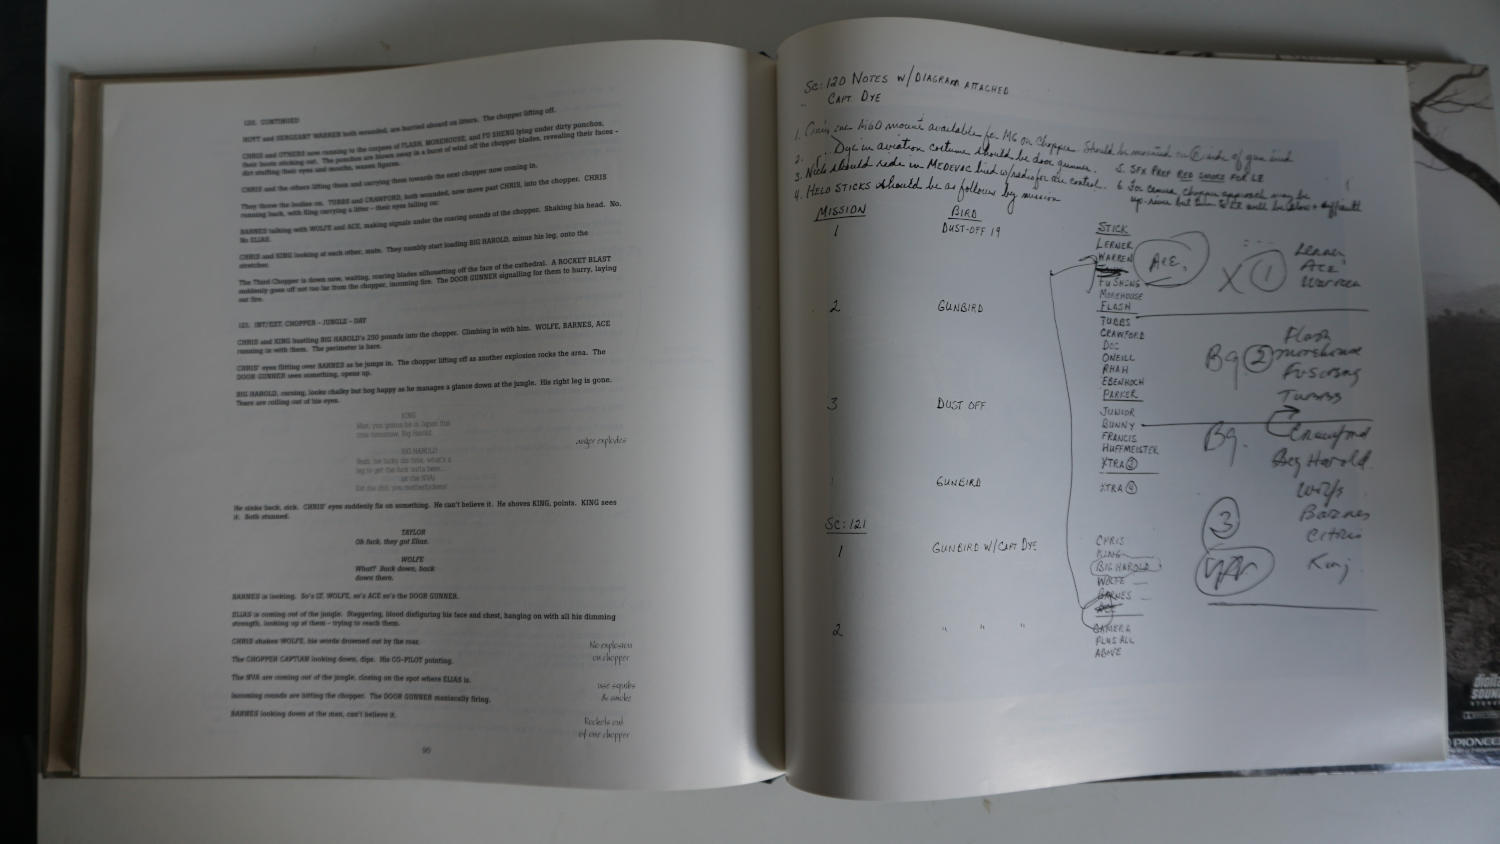 120. CONTINUED
HOYT and SERGEANT WARREN both wounded, are hurried aboard on litters. The chopper lifting off.
CHRIS and OTHERS now running to the corpses of FLASH, MOREHOUSE, and FU SHENG lying under dirty ponchos,
their boots sticking out. The ponchos are blown away in a burst of wind off the chopper blades, revealing their faces -
dirt stuffing their eyes and mouths, waxen figures.
CHRIS and the others lifting them and carrying them towards the next chopper now coming in.
They throw the bodies on. TUBBS and CRAWFORD, both wounded, now move past CHRIS, into the chopper. CHRIS
running back, with King carrying a litter - their eyes falling on:
BARNES talking with WOLFE and ACE, making signals under the roaring sounds of the chopper. Shaking his head. No.
No ELIAS.
CHRIS and KING looking at each other, mute. They numbly start loading BIG HAROLD, minus his leg, onto the
stretcher.
The Third Chopper is down now, waiting, roaring blades silhouetting off the face of the cathedral. A ROCKET BLAST
suddenly goes off not too far from the chopper, incoming fire. The DOOR GUNNER signalling for them to hurry, laying
out fire.
121. INT/EXT. CHOPPER - JUNGLE - DAY
CHRIS and KING hustling BIG HAROLD'S 250 pounds into the chopper. Climbing in with him. WOLFE, BARNES, ACE
running in with them. The perimeter is bare.
CHRIS' eyes flitting over BARNES as he jumps in. The chopper lifting off as another explosion rocks the area. The
DOOR GUNNER sees something, opens up.
BIG HAROLD, cursing, looks chalky but hog happy as he manages a glance down at the jungle. His right leg is gone.
Tears are rolling out of his eyes.
KING
Man, you gonna be in Japan this
time tomorrow, Big Harold.
major explodes
BIG HAROLD
leg to get the fuck outta here...
(at the NVA)
Eat me shit, you motherfuckers!
He sinks back, sick. CHRIS' eyes suddenly fix on something. He can't believe it. He shoves KING, points. KING sees
it. Both stunned.
TAYLOR
Oh fuck, they got Elias.
WOLFE
What? Back down, back
down there.
BARNES is looking. So's LT. WOLFE, so's ACE so's the DOOR GUNNER.
ELIAS is coming out of the jungle. Staggering, blood disfiguring his face and chest, hanging on with all his dimming
strength, looking up at them - trying to reach them.
CHRIS shakes WOLFE, his words drowned out by the roar.
No explosion
on chopper
The CHOPPER CAPTIAN looking down, dips. His CO-PILOT pointing.
The NVA are coming out of the jungle, closing on the spot where ELIAS is.
use squibs
& smoke
Incoming rounds are hitting the chopper. The DOOR GUNNER maniacally firing.
BARNES looking down at the man, can't believe it.
Rockets out
of our chopper
SC: 120 NOTES W/DIAGRAM ATTACHED
CAPT. DYE
1. Only one M60 mount available for MG on chopper. Should be mounted on side of gun bird
2. Dye in aviation costume should be door gunner.
3. should ride in MEDEVAC bird w/radio for air control.
4. HELO STICKS should be as follows by mission
5. SFX PREP RED SMOKE FOR LZ
6. For camera, chopper approach may be
but turn to LZ will be slow + difficult
MISSION BIRD STICK
1 DUST-OFF 19
LERNER
WARREN
FU SHENG
MOREHOUSE
FLASH
ACE.
X 1
Lerner
Ace
Warren
2 GUNBIRD
TUBBS
CRAWFORD
DOC
ONEILL
RHAH
EBENHOCH
PARKER
Bg 2
Flash
Morehouse
Fusheng
Tubbs
3 DUST OFF
JUNIOR
BUNNY
FRANCIS
HUFFMEISTER
XTRA 3
Bg.
Crawford
Big Harold
Wolfe
Barnes
Chris
King
GUNBIRD
XTRA 4
3
SC: 121
1 GUNBIRD W/CAPT DYE
CHRIS
KING
BIG HAROLD
WOLFE
BARNES
ACE
2 " " "
CAMERA
PLUS ALL
ABOVE
digital
SOUND
STEREO
PIONEE